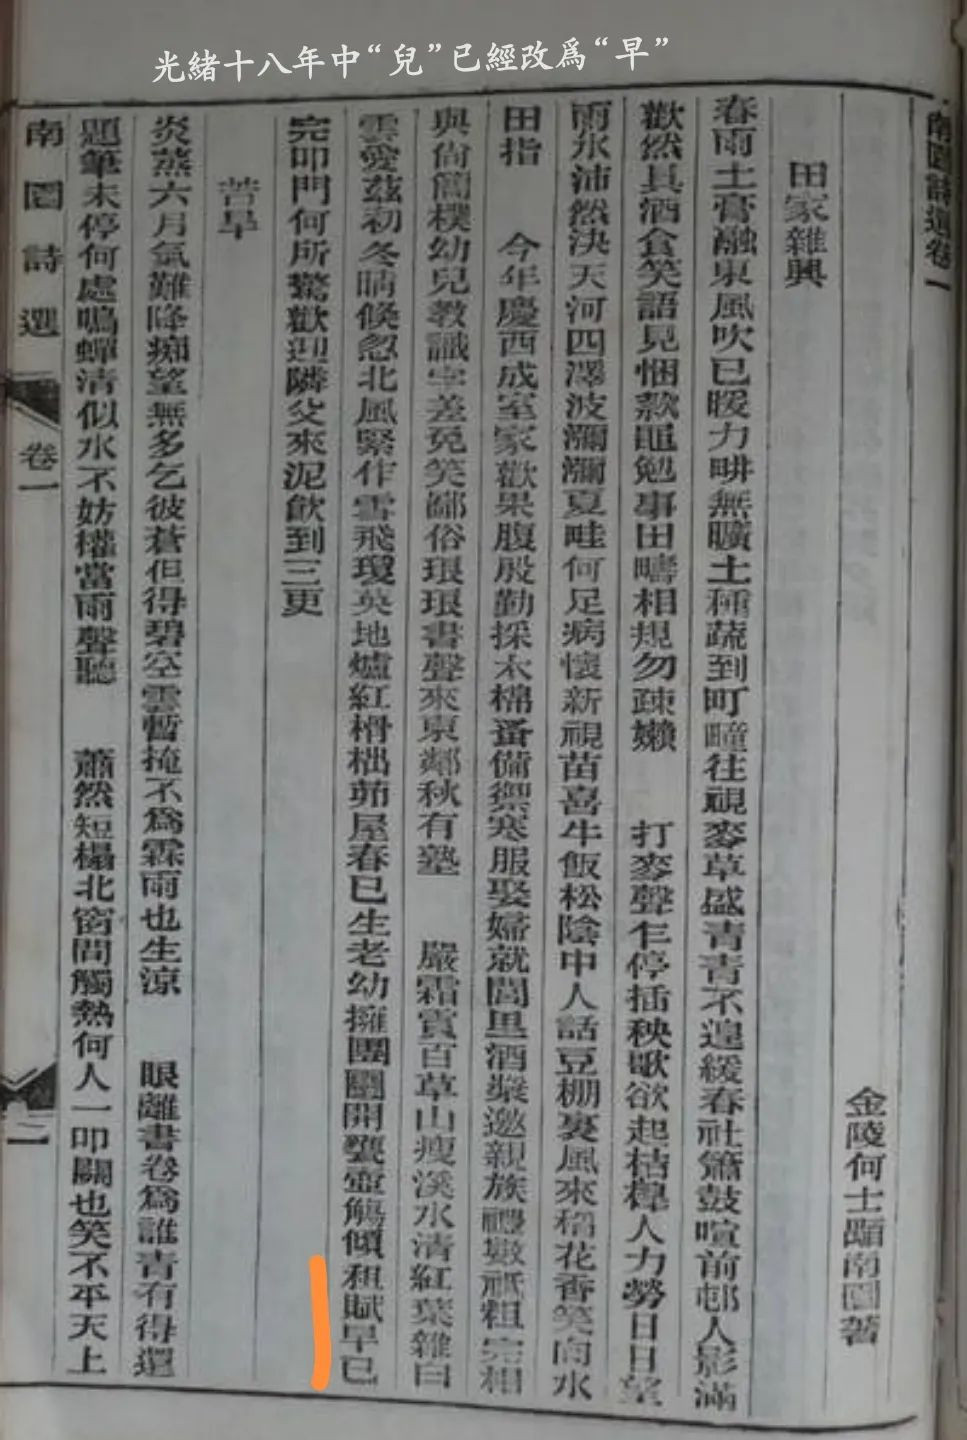 光緒十八年中“兒”已經改爲“早”
南園詩選卷一
金陵何士顒南園著
田家雜興
春雨土膏融東風吹已暖力畊無曠土種蔬到町疃往視麥草盛青青不遑緩春社簫鼓喧前邨人影滿
歡然具酒食笑語見悃款黽勉事田疇相規勿疎嬾　打麥聲乍停插秧歌欲起桔槹人力勞日日望
雨水沛然決天河四澤波瀰瀰夏畦何足病懷新視苗喜牛飯松陰中人話豆棚裏風來稻花香笑向水
田指　今年慶西成室家歡果腹殷勤採木棉蚤備禦寒服娶婦就閭里酒漿邀親族禮數祇粗完相
與尚簡樸幼兒教識字差免笑鄙俗琅琅書聲來東鄰秋有塾　嚴霜實百草山瘦溪水清紅葉雜白
雲愛茲初冬晴倏忽北風緊作雪飛瓊英地爐紅榾柮茆屋春已生老幼擁團圞開甕壺觴傾租賦早已
完叩門何所驚歡迎隣父來泥飲到三更
苦旱
炎蒸六月氣難降痴望無多乞彼蒼但得碧空雲暫掩不爲霖雨也生涼　眼離書卷爲誰青有得還
題筆未停何處鳴蟬清似水不妨權當雨聲聽　蕭然短榻北窗間觸熱何人一叩關也笑不平天上
南園詩選
卷一
一